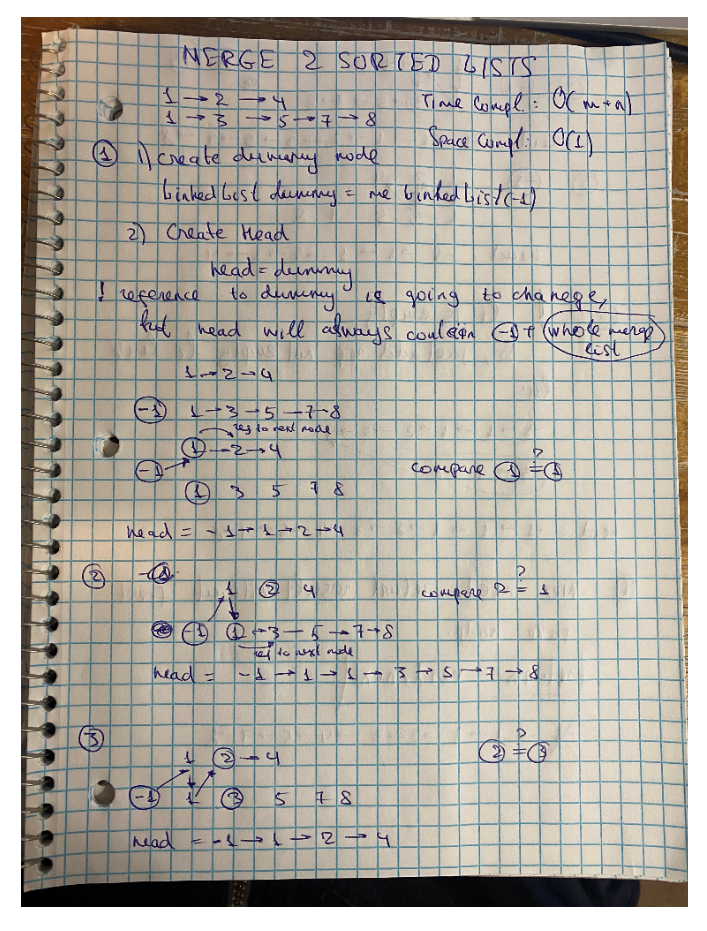 MERGE 2 SORTED LISTS
1 → 2 → 4 Time Compl: O(m+n)
1 → 3 → 5 → 7 → 8
Space Compl: O(1)
① 1) create dummy node
LinkedList dummy = ne LinkedList(-1)
2) Create Head
head = dummy
! reference to dummy is going to chanege,
but head will always contein -1 + whole merge
list
1 → 2 → 4
-1 1 → 3 → 5 → 7 → 8
ref to next node
1 → 2 → 4
-1 compare 1 ?= 1
1 3 5 7 8
head = -1 → 1 → 2 → 4
②
1 2 4 compare 2 ?= 1
-1 1 → 3 — 5 → 7 → 8
ref to next node
head = -1 → 1 → 1 → 3 → 5 → 7 → 8
③
1 2 → 4 2 ?= 3
-1 1 3 5 7 8
head = -1 → 1 → 2 → 4